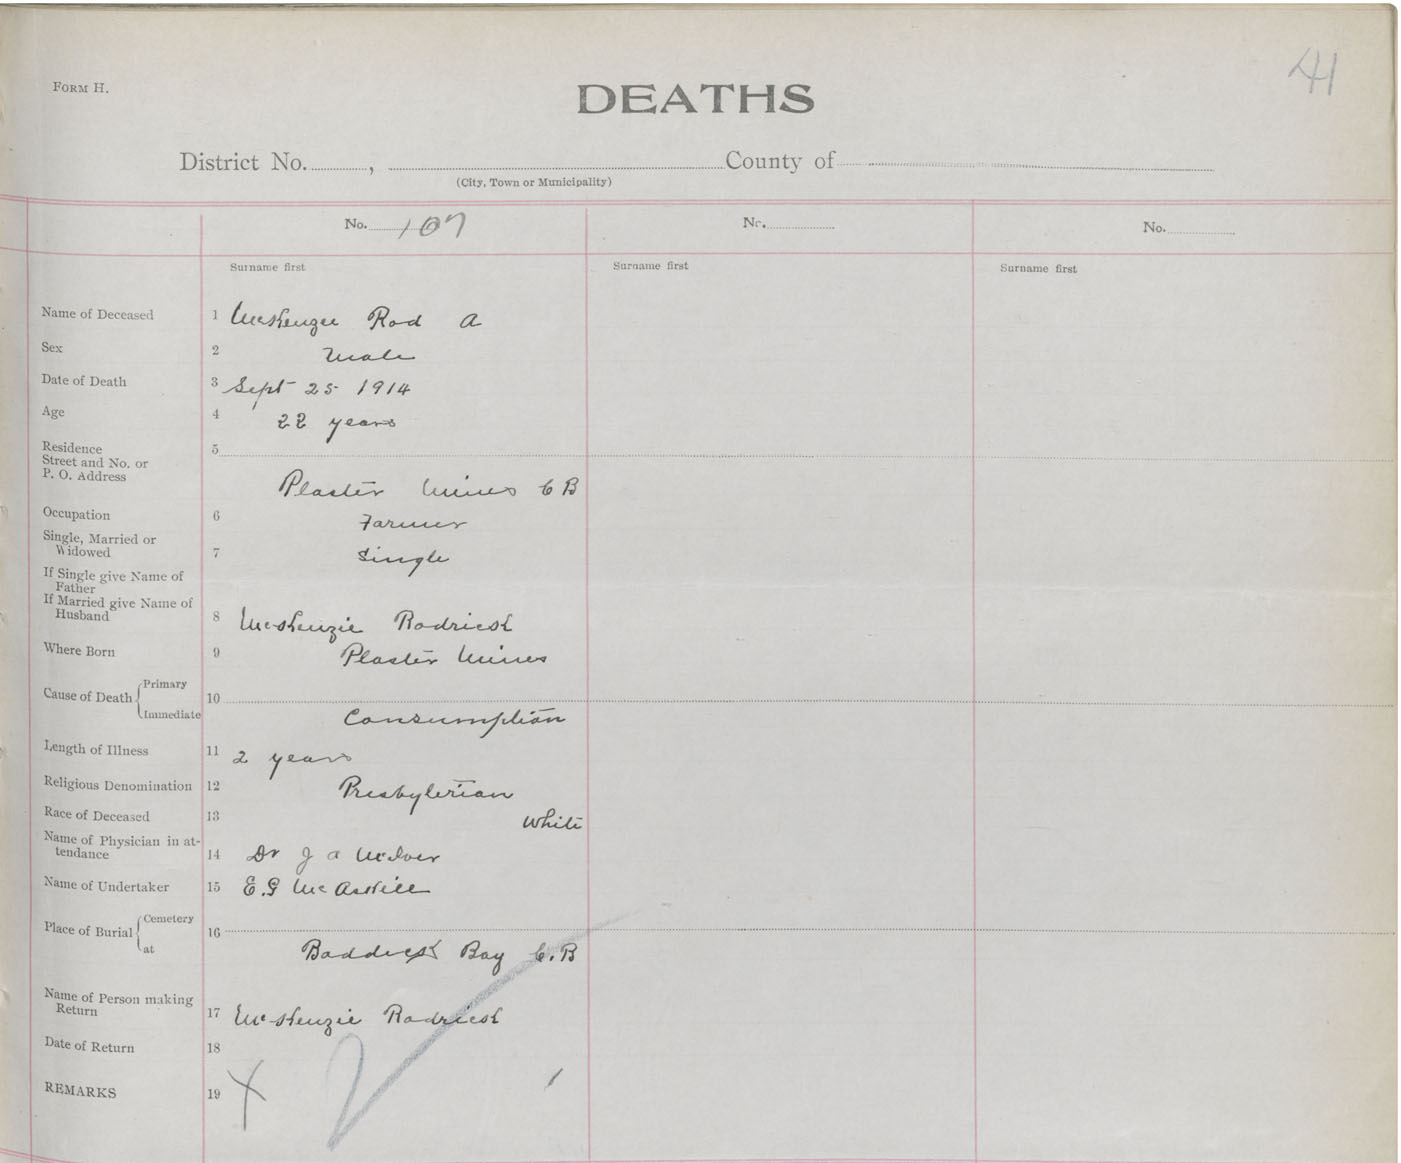 41
FORM H.
DEATHS
District No. , County of
(City, Town or Municipality)
No. 107 No. No.
Surname first Surname first Surname first
Name of Deceased 1 McKenzie Rod A
Sex 2 Male
Date of Death 3 Sept 25 1914
Age 4 22 years
Residence 5
Street and No. or
P. O. Address
Plaster Mines C B
Occupation 6 Farmer
Single, Married or
Widowed 7 Single
If Single give Name of
Father
If Married give Name of
Husband 8 McKenzie Rodrick
Where Born 9 Plaster Mines
Cause of Death Primary 10
Immediate Consumption
Length of Illness 11 2 years
Religious Denomination 12 Presbyterian
Race of Deceased 13 White
Name of Physician in at-
tendance 14 Dr J A McIver
Name of Undertaker 15 E.G McAskill
Place of Burial Cemetery 16
at Baddeck Bay C.B
Name of Person making
Return 17 McKenzie Rodrick
Date of Return 18
REMARKS 19 X